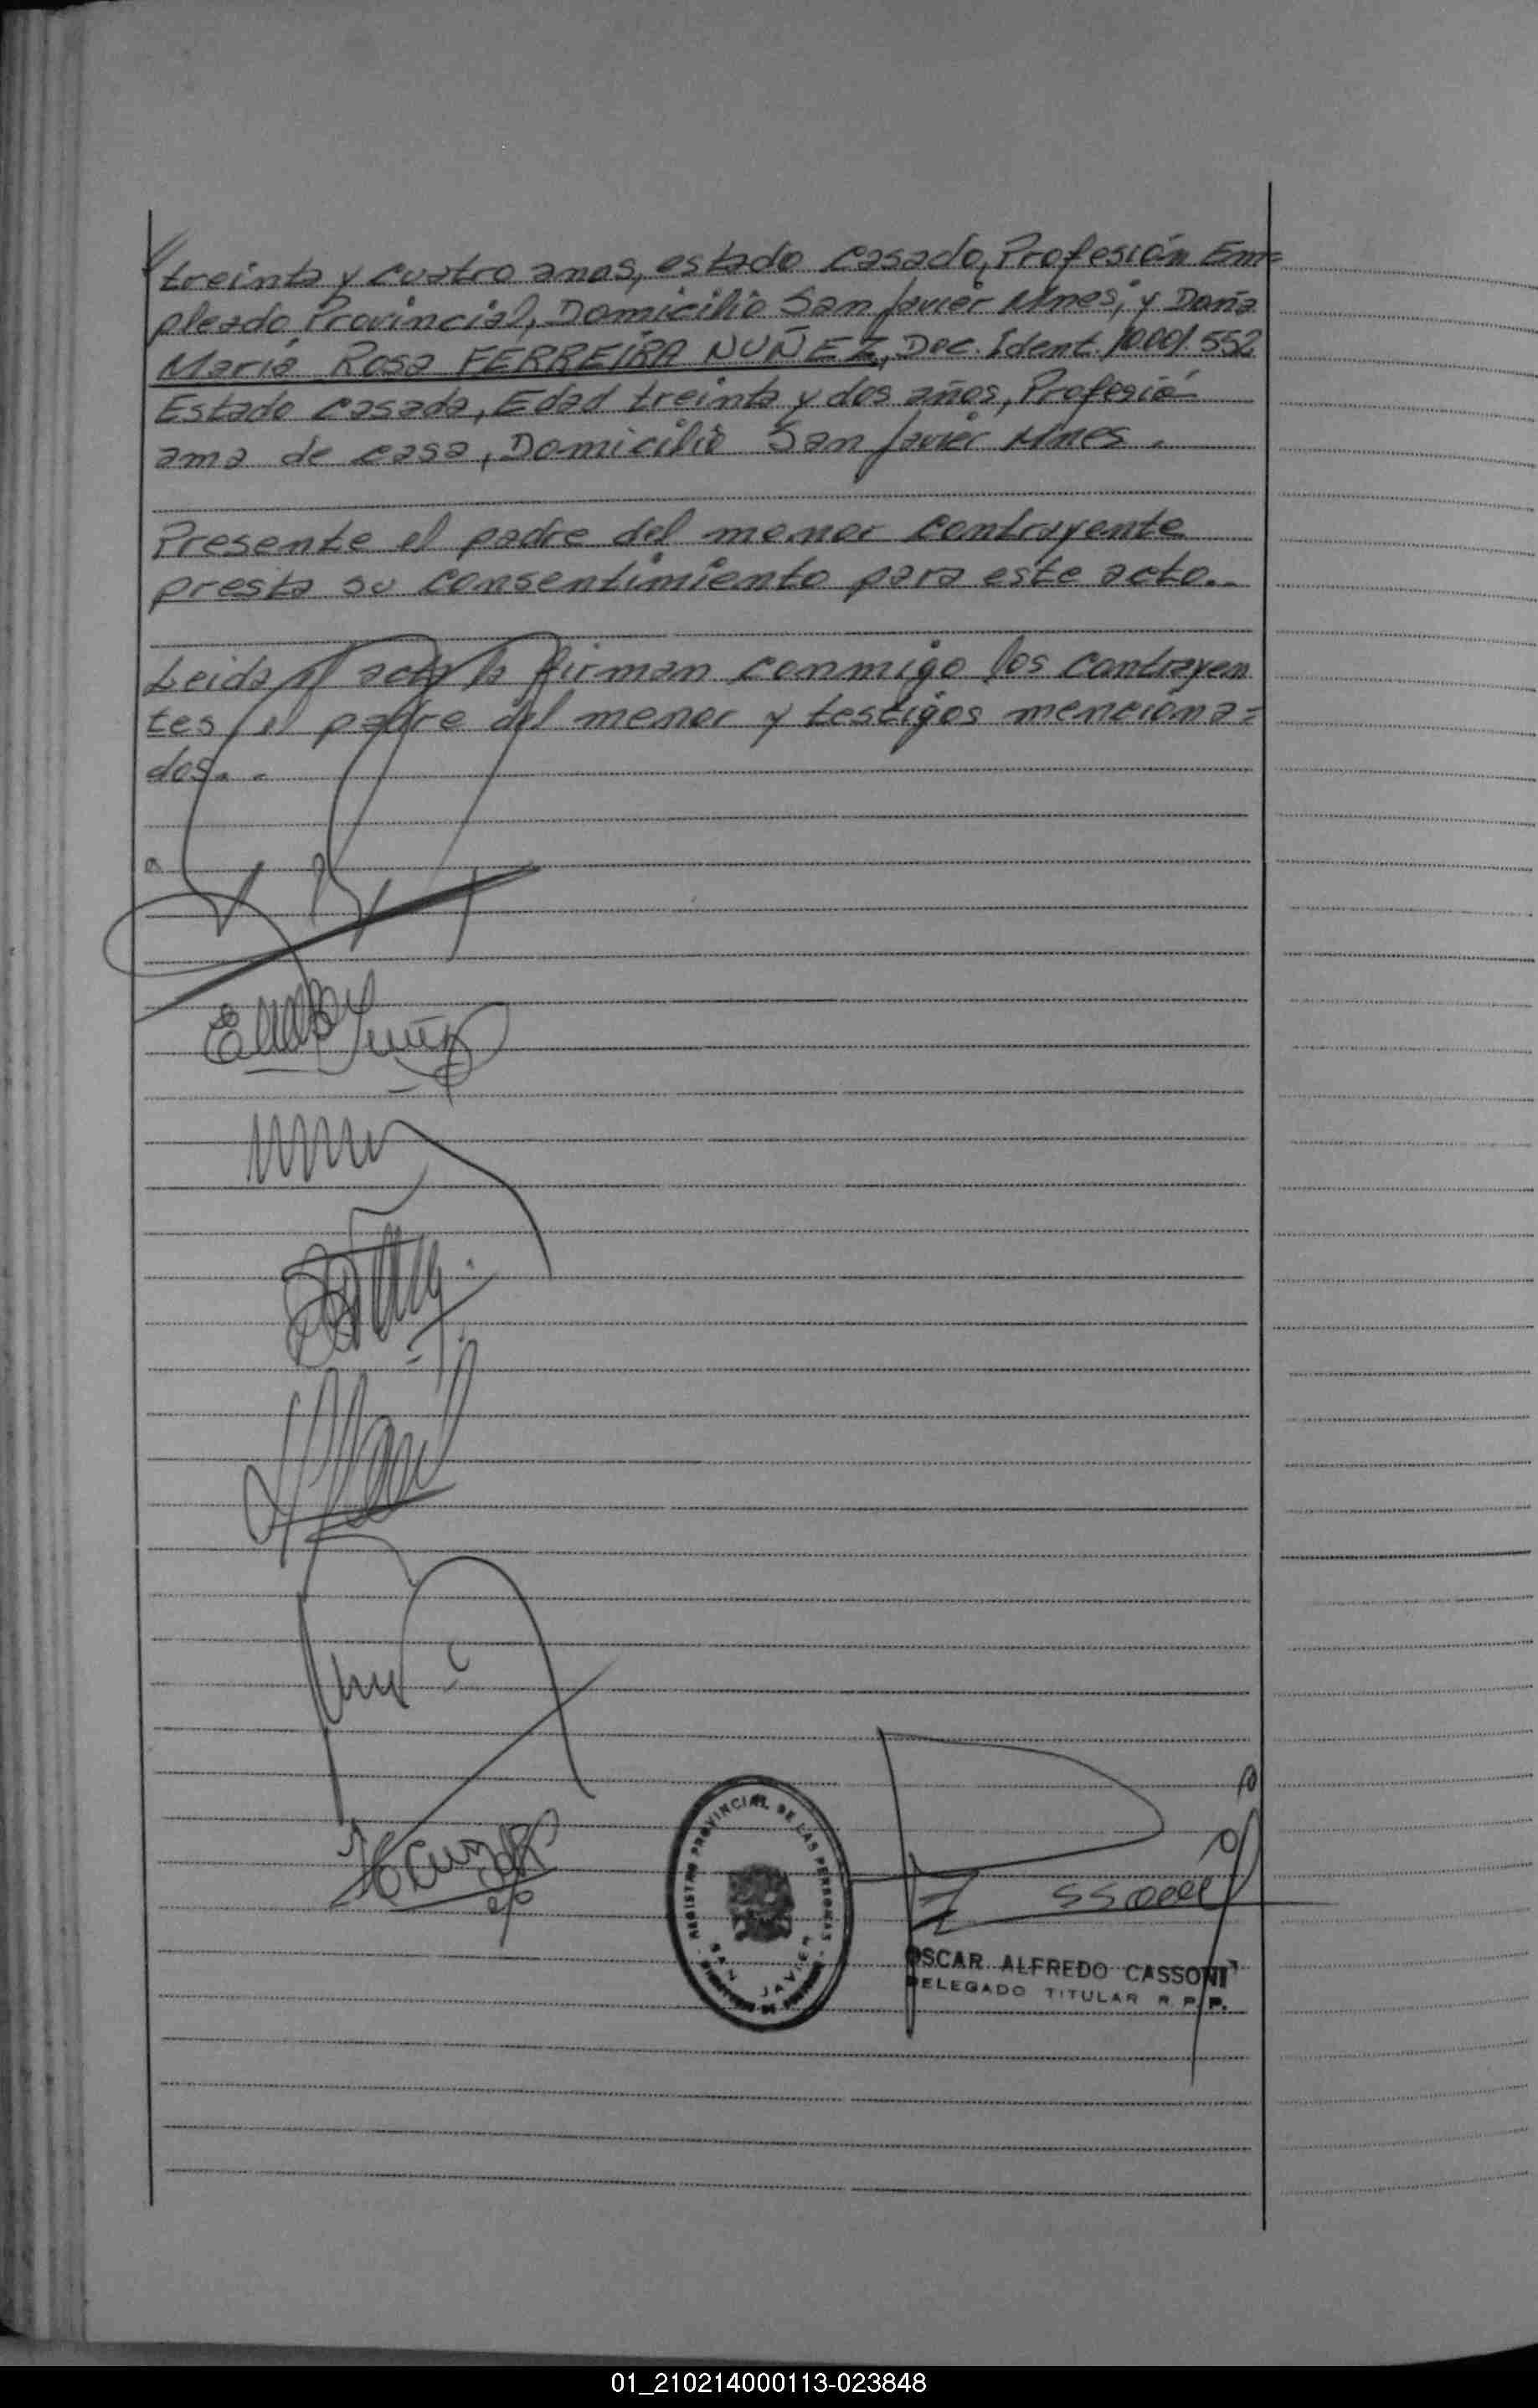 treinta y cuatro anos, estado casado, Profesión Em=
pleado Provincial, Domicilio San Javier Mnes; y Doña
Maria Rosa FERREIRA NUÑEZ, Doc. Ident. 10.001.552
Estado casada, Edad treinta y dos años, Profesió
ama de casa, Domicilio San Javier Mnes.
Presente el padre del menor contrayente
presta su consentimiento para este acto..
Leida el acta la firman conmigo los contrayen
tes, el padre del menor y testigos menciona=
dos..
REGISTRO PROVINCIAL DE LAS PERSONAS
SAN JAVIER
OSCAR ALFREDO CASSONI
DELEGADO TITULAR R.P.P.
01_210214000113-023848